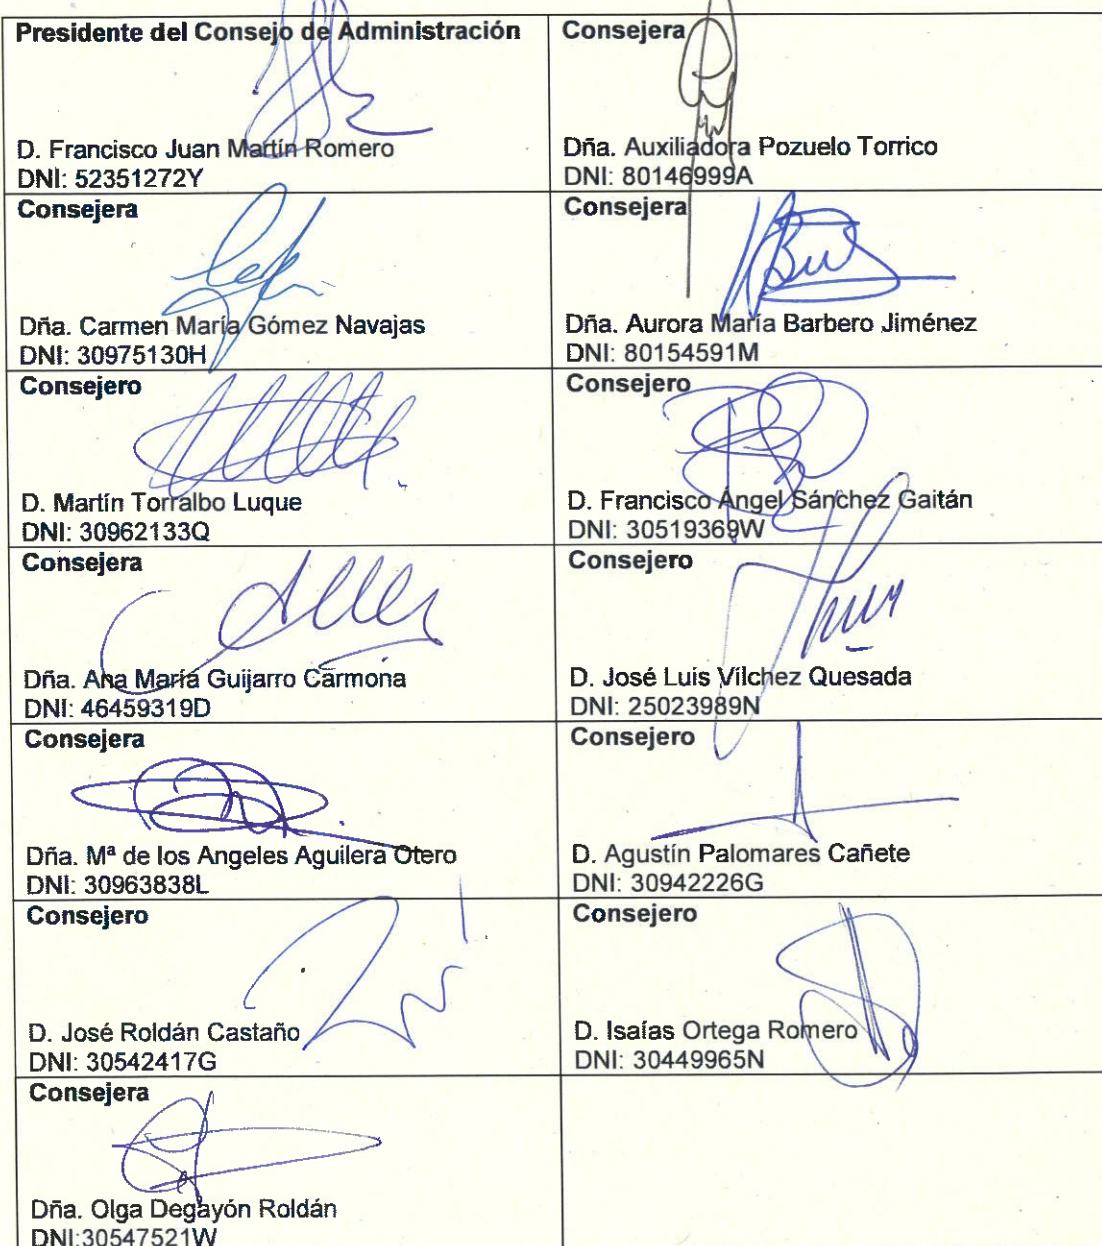 Presidente del Consejo de Administración
D. Francisco Juan Martín Romero
DNI: 52351272Y
Consejera
Dña. Auxiliadora Pozuelo Torrico
DNI: 80146999A
Consejera
Dña. Carmen María Gómez Navajas
DNI: 30975130H
Consejera
Dña. Aurora María Barbero Jiménez
DNI: 80154591M
Consejero
D. Martín Torralbo Luque
DNI: 30962133Q
Consejero
D. Francisco Ángel Sánchez Gaitán
DNI: 30519369W
Consejera
Dña. Ana María Guijarro Carmona
DNI: 46459319D
Consejero
D. José Luis Vílchez Quesada
DNI: 25023989N
Consejera
Dña. Mª de los Angeles Aguilera Otero
DNI: 30963838L
Consejero
D. Agustín Palomares Cañete
DNI: 30942226G
Consejero
D. José Roldán Castaño
DNI: 30542417G
Consejero
D. Isaías Ortega Romero
DNI: 30449965N
Consejera
Dña. Olga Degayón Roldán
DNI:30547521W